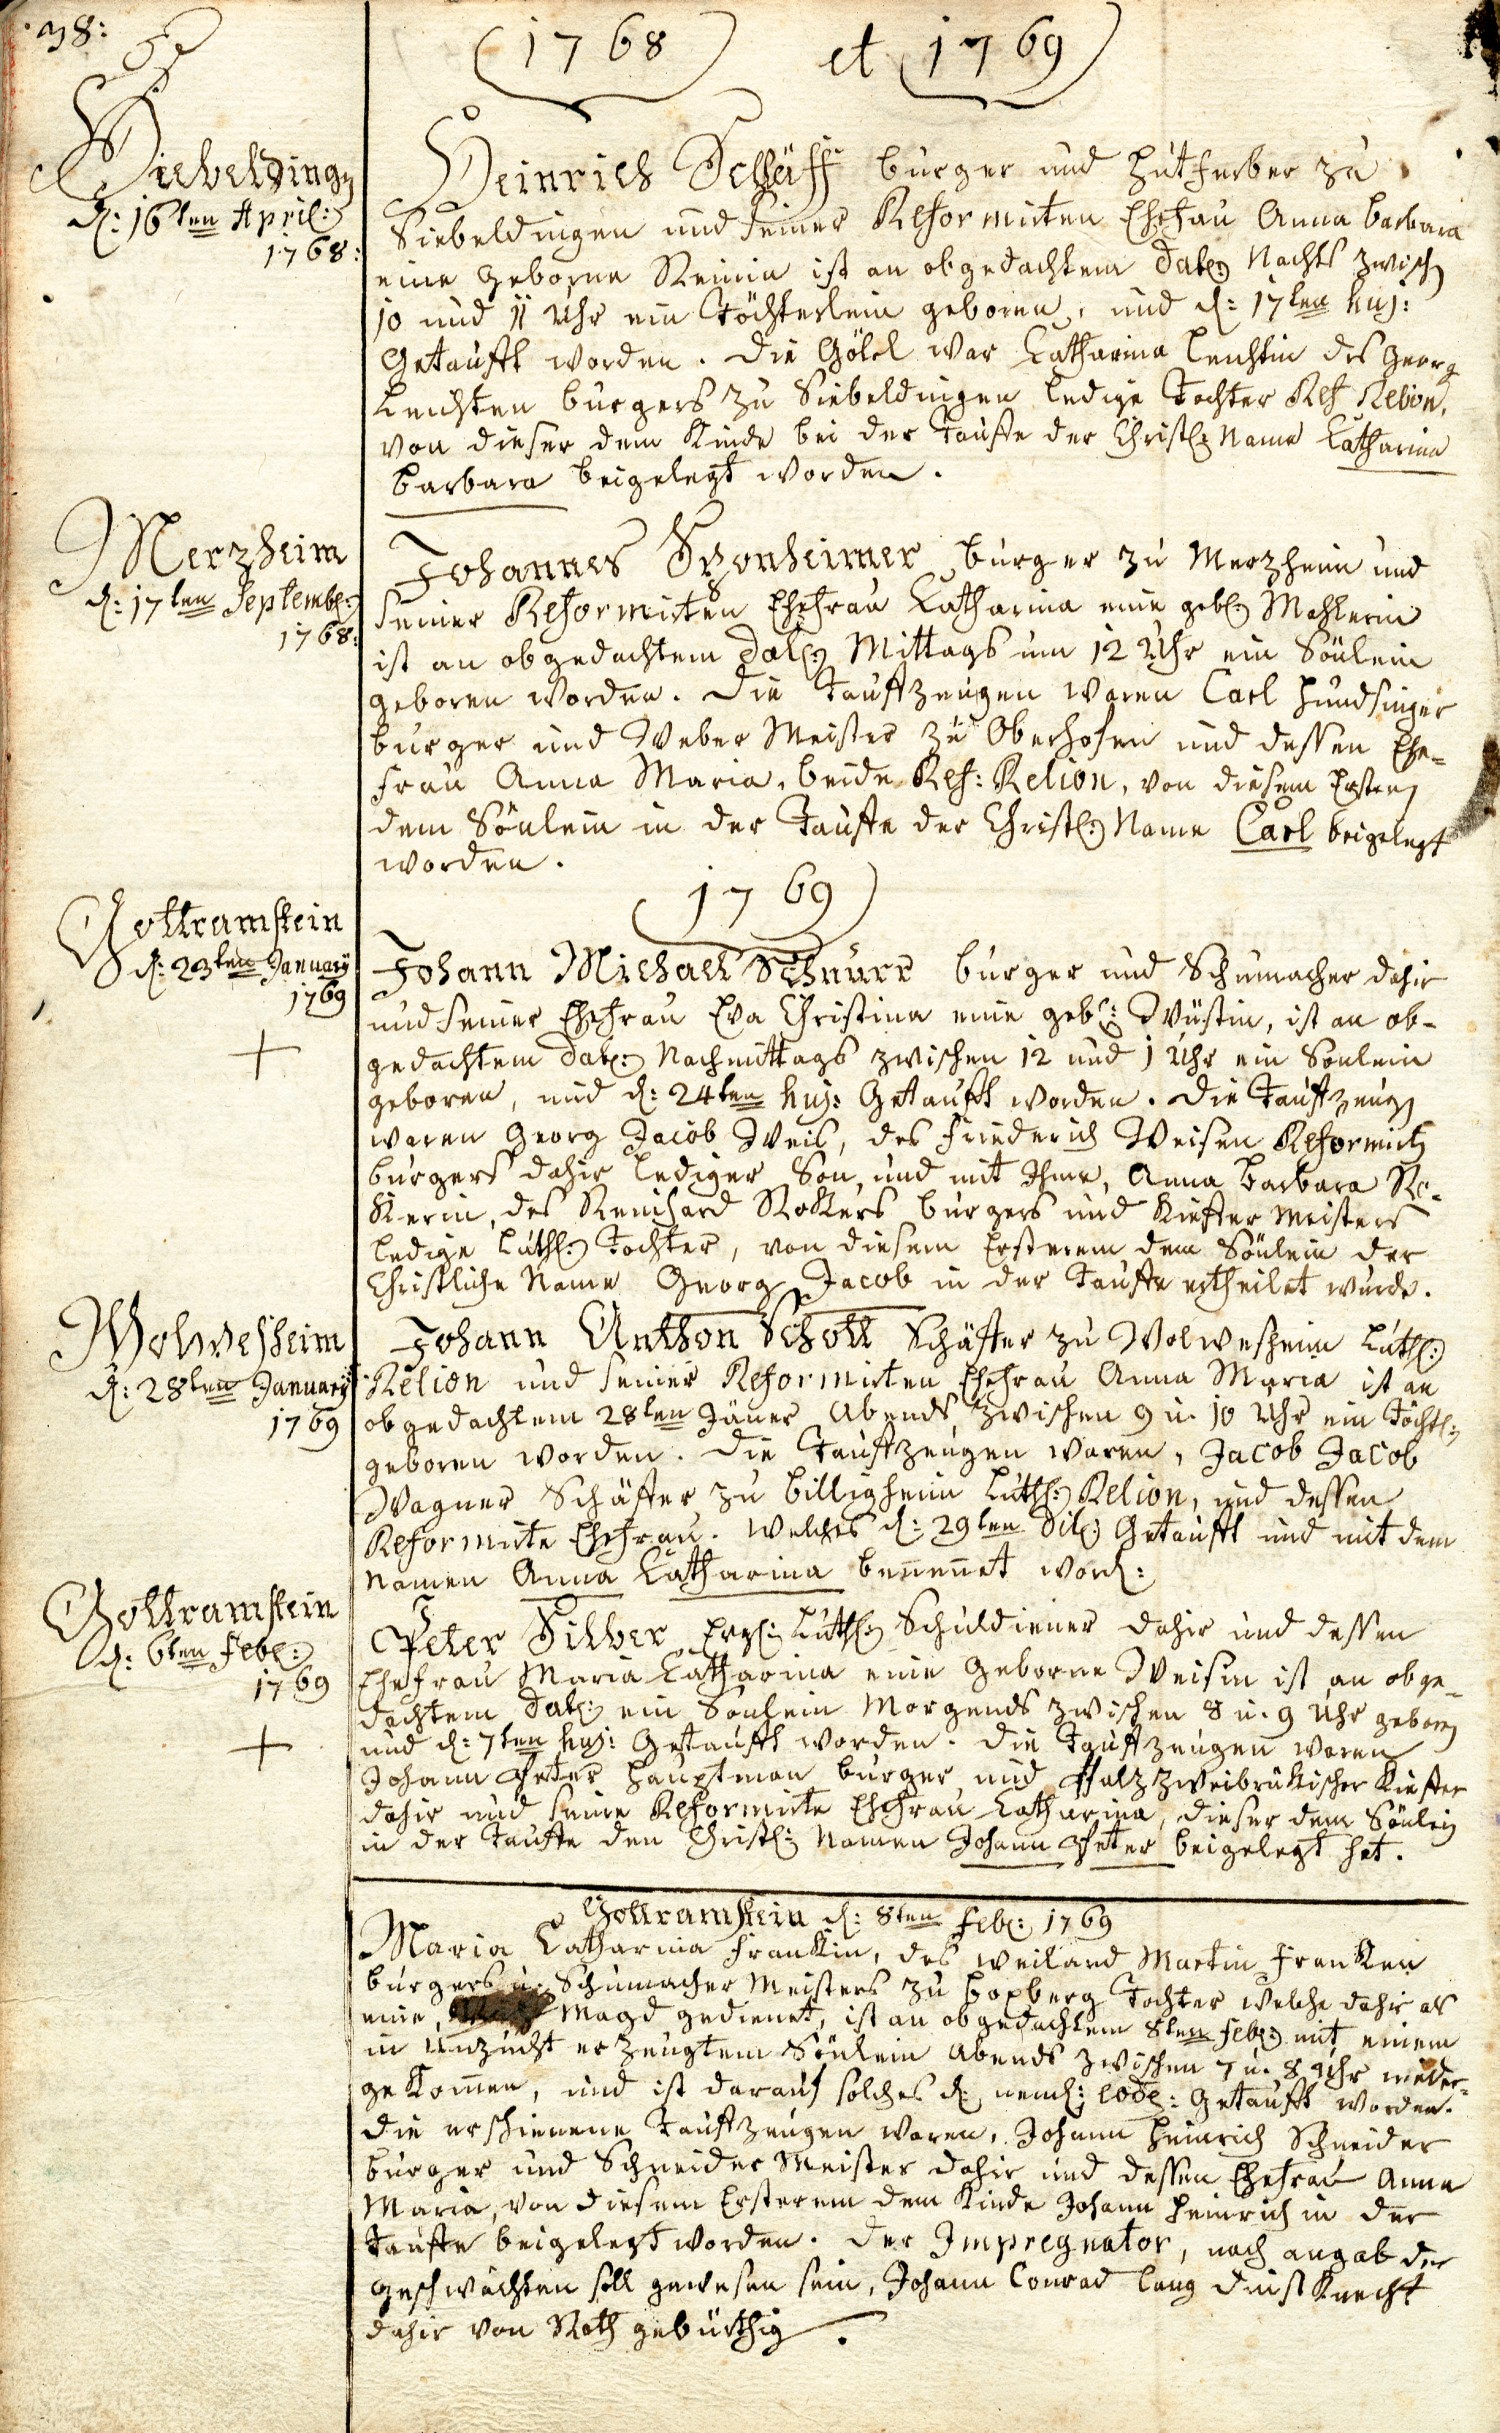 38:
1768 et 1769
Siebelding
d: 16ten April:
1768:
Heinrich Schleiff burger und Hutferber zu
Siebeldingen und seiner Reformirten Ehefrau Anna barbara
eine geborne Reinin ist an obgedachtem dat: Nachts zwisch
10 und 11 Uhr ein Töchterlein geboren, und d: 17ten huj:
Getaufft worden. Die Götel war Catharina Leichtin des Georg
Leichten burgers zu Siebeldingen ledige Tochter Ref Relion,
von dieser dem Kinde bei der Tauffe der Christl: Name Catharina
barbara beigelegt worden.
Merzheim
d: 17ten Septemb:
1768:
Johannes Sponheimer burger zu Merzheim und
seiner Reformirten Ehefrau Catharina eine geb: Mahlerin
ist an obgedachtem dat: Mittags um 12 Uhr ein Sönlein
geboren worden. Die Tauffzeugen waren Carl Hundsinger
burger und Weber Meister zu Oberhofen und dessen Ehe-
frau Anna Maria, beide Ref: Relion, von diesem Ersten
dem Sönlein in der Tauffe der Christl: Name Carl beigelegt
worden.
1769
Gottramstein
d: 23ten January
1769
Johann Michael Schnurr burger und Schumacher dahir
und seiner Ehefrau Eva Christina eine geb: Wüstin, ist an ob-
gedachtem dat: Nachmittags zwischen 12 und 1 Uhr ein Sönlein
geboren, und d: 24ten huj: Getaufft worden. Die Tauffzeug
waren Georg Jacob Weis, des Friederich Weisen Reformirt
burgers dahir lediger Son, und mit Ihme, Anna Barbara Ro-
kerin, des Reinhard Rokers burgers und Kieffer Meisters
ledige Luth: Tochter, von diesem Ersterem dem Sönlein der
Christliche Name Georg Jacob in der Tauffe ertheilet wurde.
Wolwesheim
d: 28ten January
1769
Johann Anthon Schott Schäffer zu Wolwesheim Luth:
Relion und seiner Reformirten Ehefrau Anna Maria ist an
obgedachtem 28ten Jäner Abends zwischen 9 u. 10 Uhr ein Töchtl:
geboren worden. Die Tauffzeugen waren, Jacob Jacob
Wagner Schäffer zu billigheim Luth: Relion, und dessen
Reformirte Ehefrau. Welches d: 29ten dit: Getaufft und mit dem
Namen Anna Catharina benennet word:
Gottramstein
d: 6ten Feb:
1769
Peter Silber Luth: Schuldiener dahir und dessen
Ehefrau Maria Catharina eine Geborne Weisin ist an obge-
dachtem dat: ein Sönlein Morgends zwischen 8 u. 9 Uhr geborn
und d: 7ten huj: Getaufft worden. Die Tauffzeugen waren
Johann Peter Hauptman burger und Pfalzzweibrükischer Kieffer
dahir und seine Reformirte Ehefrau Catharina, dieser dem Sönlein
in der Tauffe den Christl: Namen Johann Peter beigelegt hat.
Gottramstein d: 8ten Feb: 1769
Maria Catharina Frankin, des weiland Martin Franken
burgers u. Schumacher Meisters zu boxberg Tochter welche dahir als
eine Magd gedienet, ist an obgedachtem 8ten Feb: mit einem
in Unzucht erzeugtem Sönlein Abends zwischen 7 u. 8 Uhr nieder-
gekommen, und ist darauf solches d: eod: Getaufft worden.
die erschienene Tauffzeugen waren, Johann Heinrich Schneider
burger und Schneider Meister dahir und dessen Ehefrau Anna
Maria, von diesem Ersterem dem Kinde Johann Heinrich in der
Tauffe beigelegt worden. Der Impregnator, nach angab der
geschwächten soll gewesen sein, Johann Conrad Lang dinst Knecht
dahir von Roth gebürthig.